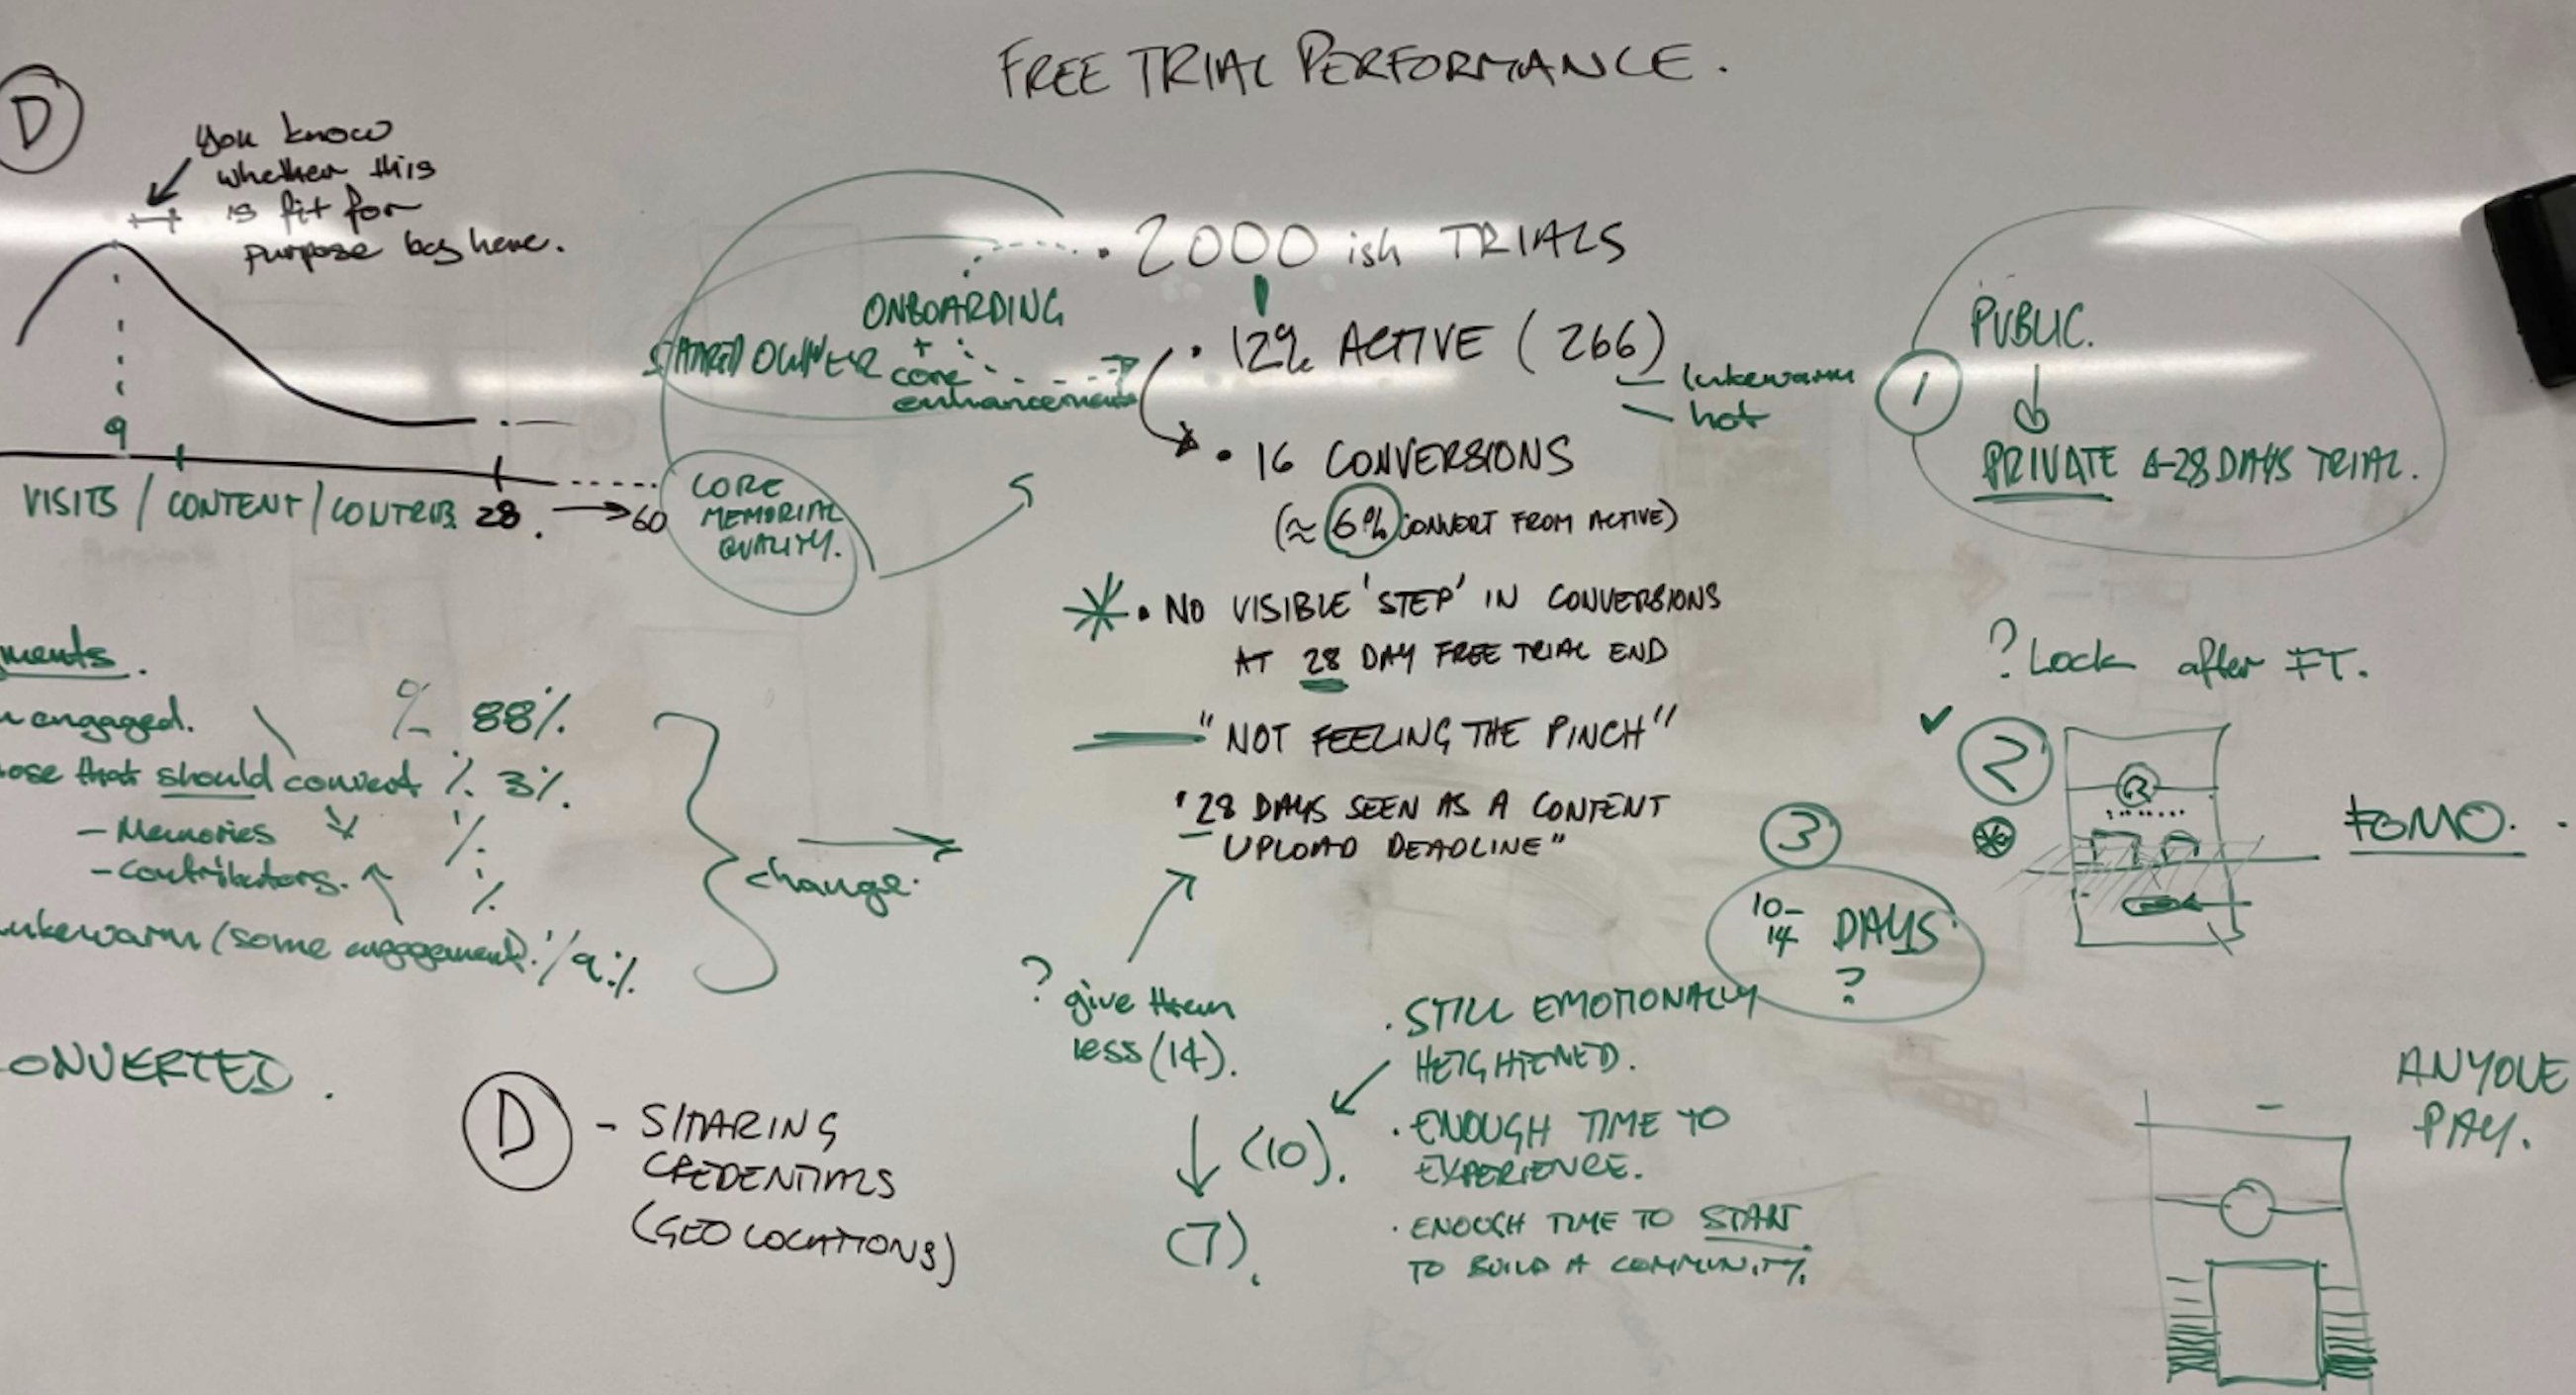 FREE TRIAL PERFORMANCE.
D
you know
whether this
is fit for
purpose by here.
9
VISITS / CONTENT / CONTRIB. 28. → 60
CORE
MEMORIAL
QUALITY.
ONBOARDING
SHARED OWNER +
core
enhancements
• 2000 ish TRIALS
• 12% ACTIVE (266)
lukewarm
hot
• 16 CONVERSIONS
(≈ 6% CONVERT FROM ACTIVE)
• NO VISIBLE 'STEP' IN CONVERSIONS
AT 28 DAY FREE TRIAL END
"NOT FEELING THE PINCH"
"28 DAYS SEEN AS A CONTENT
UPLOAD DEADLINE"
1
PUBLIC.
PRIVATE 28 DAYS TRIAL.
? Lock after FT.
✓
2
FOMO.
3
10-
14 DAYS
?
ments.
engaged. % 88%.
ose that should convert % 3%.
- Memories %
- Contributors. %
ukewarm (some engagement). % 9%.
change.
ONVERTED.
D - SHARING
CREDENTIALS
(GEO LOCATIONS)
? give them
less (14).
(10).
(7).
• STILL EMOTIONALLY
HEIGHTENED.
• ENOUGH TIME TO
EXPERIENCE.
• ENOUGH TIME TO START
TO BUILD A COMMUNITY.
ANYONE
PAY.